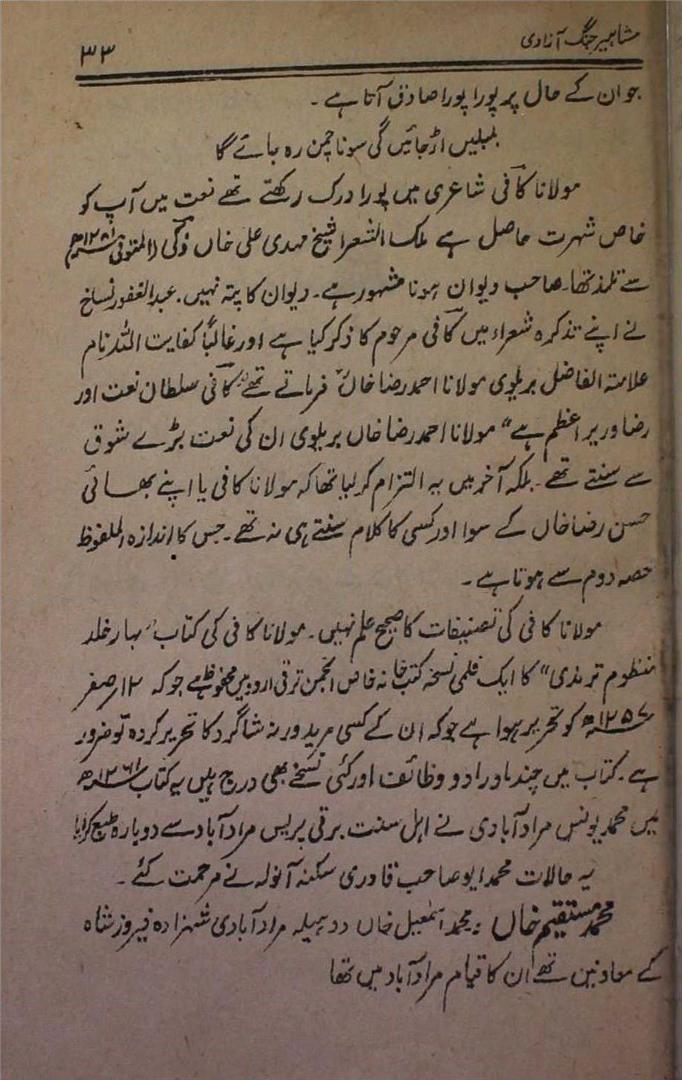 مشاہیر جنگ آزادی
۳۳
جو ان کے حال پر پورا پورا صادق آتا ہے۔
بلبلیں اڑ جائیں گی سونا چمن رہ جائے گا
مولانا کافی شاعری میں پورا درک رکھتے تھے نعت میں آپ کو
خاص شہرت حاصل ہے ملک الشعرا شیخ مہدی علی خاں ذکی (المتوفی ۱۲۸۱ھ)
سے تلمذ تھا۔ صاحب دیوان ہونا مشہور ہے۔ دیوان کا پتہ نہیں۔ عبدالغفور نساخ
نے اپنے تذکرہ شعراء میں کافی مرحوم کا ذکر کیا ہے اور غالباً کفایت اللہ نام
علامتہ الفاضل بریلوی مولانا احمد رضا خاںؒ فرماتے تھے "کافی سلطان نعت اور
رضا وزیر اعظم ہے" مولانا احمد رضا خاں بریلوی ان کی نعت بڑے شوق
سے سنتے تھے۔ بلکہ آخر میں یہ التزام کر لیا تھا کہ مولانا کافی یا اپنے بھائی
حسن رضا خاں کے سوا اور کسی کا کلام سنتے ہی نہ تھے۔ جس کا اندازہ الملفوظ
حصہ دوم سے ہوتا ہے۔
مولانا کافی کی تصنیفات کا صحیح علم نہیں۔ مولانا کافی کی کتاب "بہار خلد
منظوم ترمذی" کا ایک قلمی نسخہ کتب خانہ خاص انجمن ترقی اردو میں محفوظ ہے جو کہ ۱۲ صفر
۱۲۵۷ھ کو تحریر ہوا ہے جو کہ ان کے کسی مرید ورنہ شاگرد کا تحریر کردہ تو ضرور
ہے۔ کتاب میں چند اوراد و وظائف اور کئی نسخے بھی درج ہیں یہ کتاب ۱۳۶۱ھ
میں محمد یونس مراد آبادی نے اہل سنت برقی پریس مراد آباد سے دوبارہ طبع کرایا
یہ حالات محمد ایوب صاحب قادری سکنہ آنولہ نے مرحمت کئے۔
محمد مستقیم خاں : محمد اسمٰعیل خاں روہیلہ مراد آبادی شہزادہ فیروز شاہ
کے معاونین تھے ان کا قیام مراد آباد میں تھا